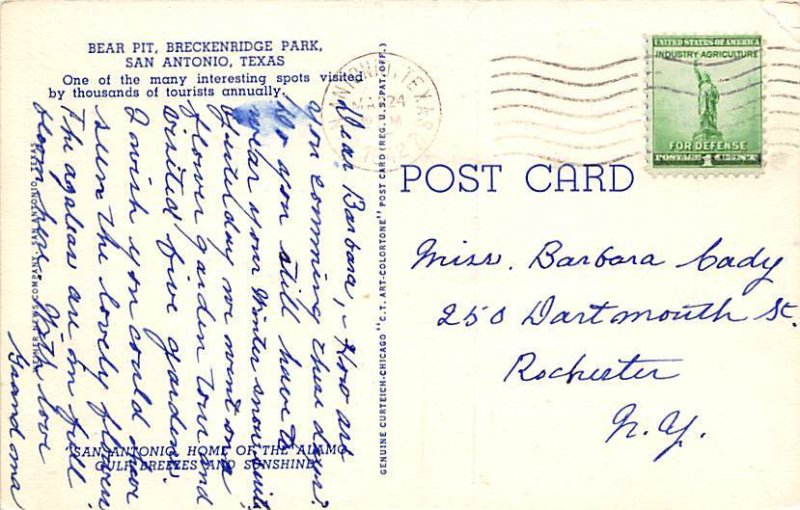 BEAR PIT, BRECKENRIDGE PARK,
SAN ANTONIO, TEXAS
One of the many interesting spots visited
by thousands of tourists annually.
Dear Barbara, - How are
you comming these days?
Do you still have to
wear your Winter snow suit,
Yesterday we went on a
flower garden tour and
visited five gardens.
I wish you could have
seen the lovely flowers
The azaleas are in full
bloom here. With love
Grandma
"SAN ANTONIO, HOME OF THE ALAMO
GULF BREEZES AND SUNSHINE"
GENUINE CURTEICH-CHICAGO "C.T. ART-COLORTONE" POST CARD (REG. U.S. PAT. OFF.)
SAN ANTONIO, TEXAS
MAR 24
UNITED STATES OF AMERICA
INDUSTRY-AGRICULTURE
FOR DEFENSE
POSTAGE 1 CENTS
POST CARD
Miss. Barbara Cady
250 Dartmouth St.
Rochester
N.Y.